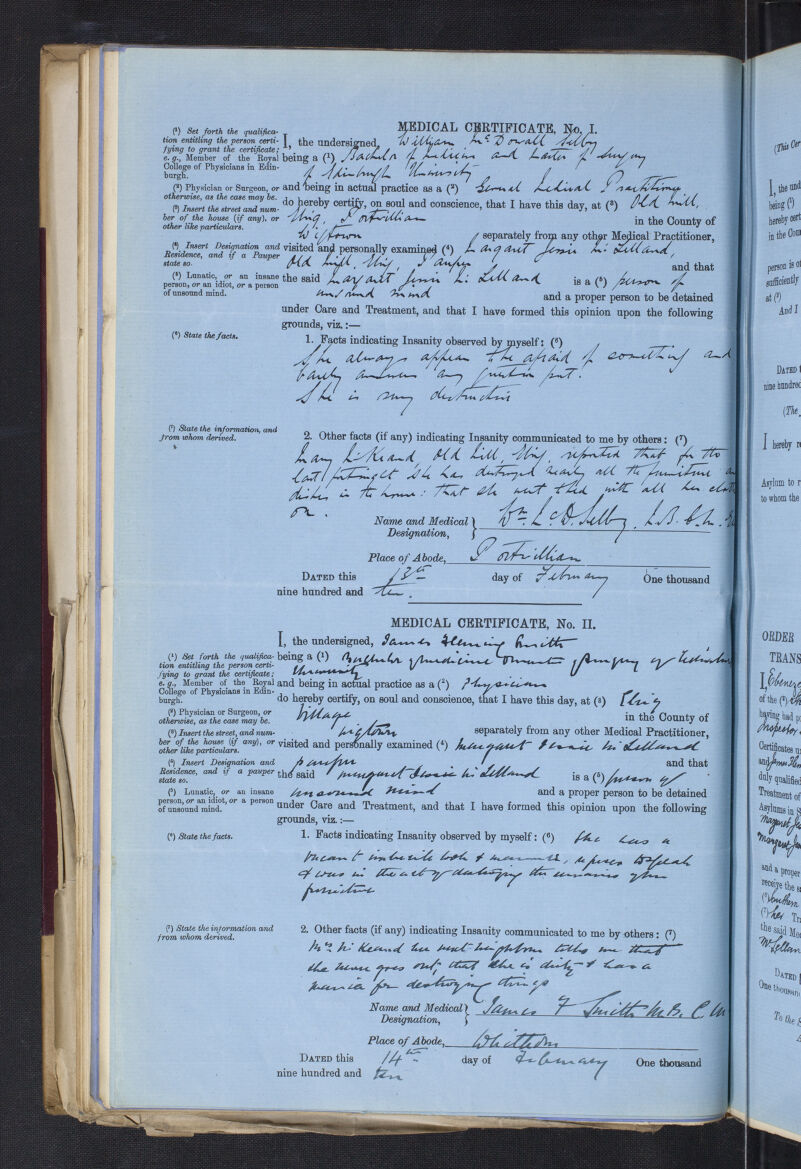 MEDICAL CERTIFICATE, No. I.
(¹) Set forth the qualifica-
tion entitling the person certi-
fying to grant the certificate;
e.g., Member of the Royal
College of Physicians in Edin-
burgh.
(²) Physician or Surgeon, or
otherwise, as the case may be.
(³) Insert the street and num-
ber of the house (if any), or
other like particulars.
(⁴) Insert Designation and
Residence, and if a Pauper
state so.
(⁵) Lunatic, or an insane
person, or an idiot, or a person
of unsound mind.
(⁶) State the facts.
(⁷) State the information, and
from whom derived.
I, the undersigned, William McDowall Selby
being a (¹) Bachelor of Medicine and Master of Surgery
of Edinburgh University
and being in actual practice as a (²) General Medical Practitioner
do hereby certify, on soul and conscience, that I have this day, at (³) Old Mill,
Elrig, Portwilliam in the County of
Wigtown separately from any other Medical Practitioner,
visited and personally examined (⁴) Margaret Jessie McLelland,
Old Mill, Elrig, Pauper and that
the said Margaret Jessie McLelland is a (⁵) person of
unsound mind and a proper person to be detained
under Care and Treatment, and that I have formed this opinion upon the following
grounds, viz.:—
1. Facts indicating Insanity observed by myself: (⁶)
She always appears to be afraid of something and
barely answers any question put.
She is very destructive
2. Other facts (if any) indicating Insanity communicated to me by others: (⁷)
Mary McKeand, Old Mill, Elrig, reported that for the
last fortnight she has destroyed nearly all the furniture and
dishes in the house: that she went to bed with all her clothes
on.
Name and Medical Designation, Wm. McD. Selby. M.B. C.M.
Place of Abode, Portwilliam
DATED this 13th day of February One thousand
nine hundred and ten.
MEDICAL CERTIFICATE, No. II.
(¹) Set forth the qualifica-
tion entitling the person certi-
fying to grant the certificate;
e.g., Member of the Royal
College of Physicians in Edin-
burgh.
(²) Physician or Surgeon, or
otherwise, as the case may be.
(³) Insert the street, and num-
ber of the house (if any), or
other like particulars.
(⁴) Insert Designation and
Residence, and if a pauper
state so.
(⁵) Lunatic, or an insane
person, or an idiot, or a person
of unsound mind.
(⁶) State the facts.
(⁷) State the information and
from whom derived.
I, the undersigned, James Fleming Smith
being a (¹) Bachelor of medicine & master of Surgery of Edinburgh
University
and being in actual practice as a (²) Physician
do hereby certify, on soul and conscience, that I have this day, at (³) Elrig
Village in the County of
Wigtown separately from any other Medical Practitioner,
visited and personally examined (⁴) Margaret Jessie McLelland
pauper and that
the said Margaret Jessie McLelland is a (⁵) person of
unsound mind and a proper person to be detained
under Care and Treatment, and that I have formed this opinion upon the following
grounds, viz.:—
1. Facts indicating Insanity observed by myself: (⁶) She has a
vacant imbecile look & manner, refuses to speak
& was in the act of destroying the remains of her
furniture
2. Other facts (if any) indicating Insanity communicated to me by others: (⁷)
Mrs McKeand her next neighbour tells me that
she never goes out, that she is dirty & has a
mania for destroying things
Name and Medical Designation, James F Smith M.B. C.M
Place of Abode, Whithorn
DATED this 14th day of February One thousand
nine hundred and ten
(This Cer
I, the und
being (¹)
hereby cert
in the Coun
person is o
sufficiently
at (³)
And I
DATED t
nine hundred
(The
I hereby re
Asylum to r
to whom the
ORDER
TRANS
I, Ebenezer
of the (²)
having had p
Inspector
Certificates u
duly qualified
Treatment of
Asylums in S
and a proper
receive the s
(⁶) Southern
(⁷) her Tr
the said Me
McLellan
DATED
One thousan
To the S